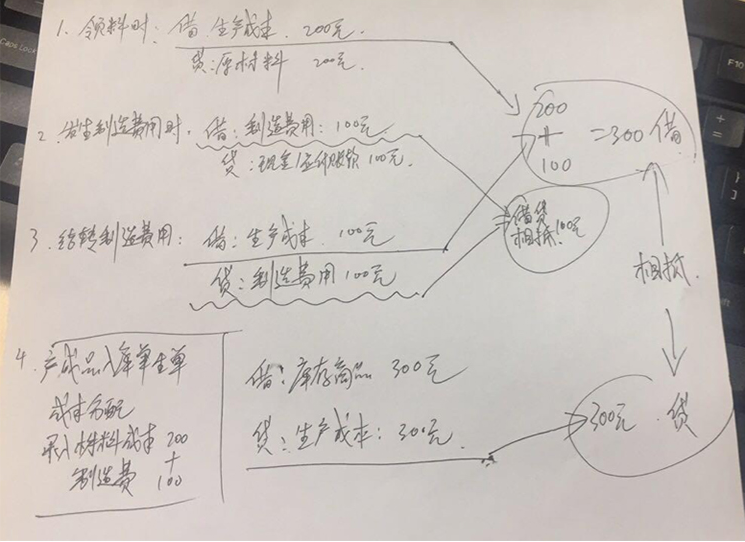 1. 领料时: 借: 生产成本. 200元.
贷: 原材料 200元.
200
+
100
=300 借
2. 发生制造费用时, 借: 制造费用: 100元.
贷: 现金/应付账款 100元.
借贷
相抵 100元
3. 结转制造费用: 借: 生产成本. 100元
贷: 制造费用 100元
相抵.
4. 产成品入库单生单
成本分配
录入材料成本 200
+
制造费 100
借: 库存商品 300元
贷: 生产成本: 300元.
300元. 贷
F10